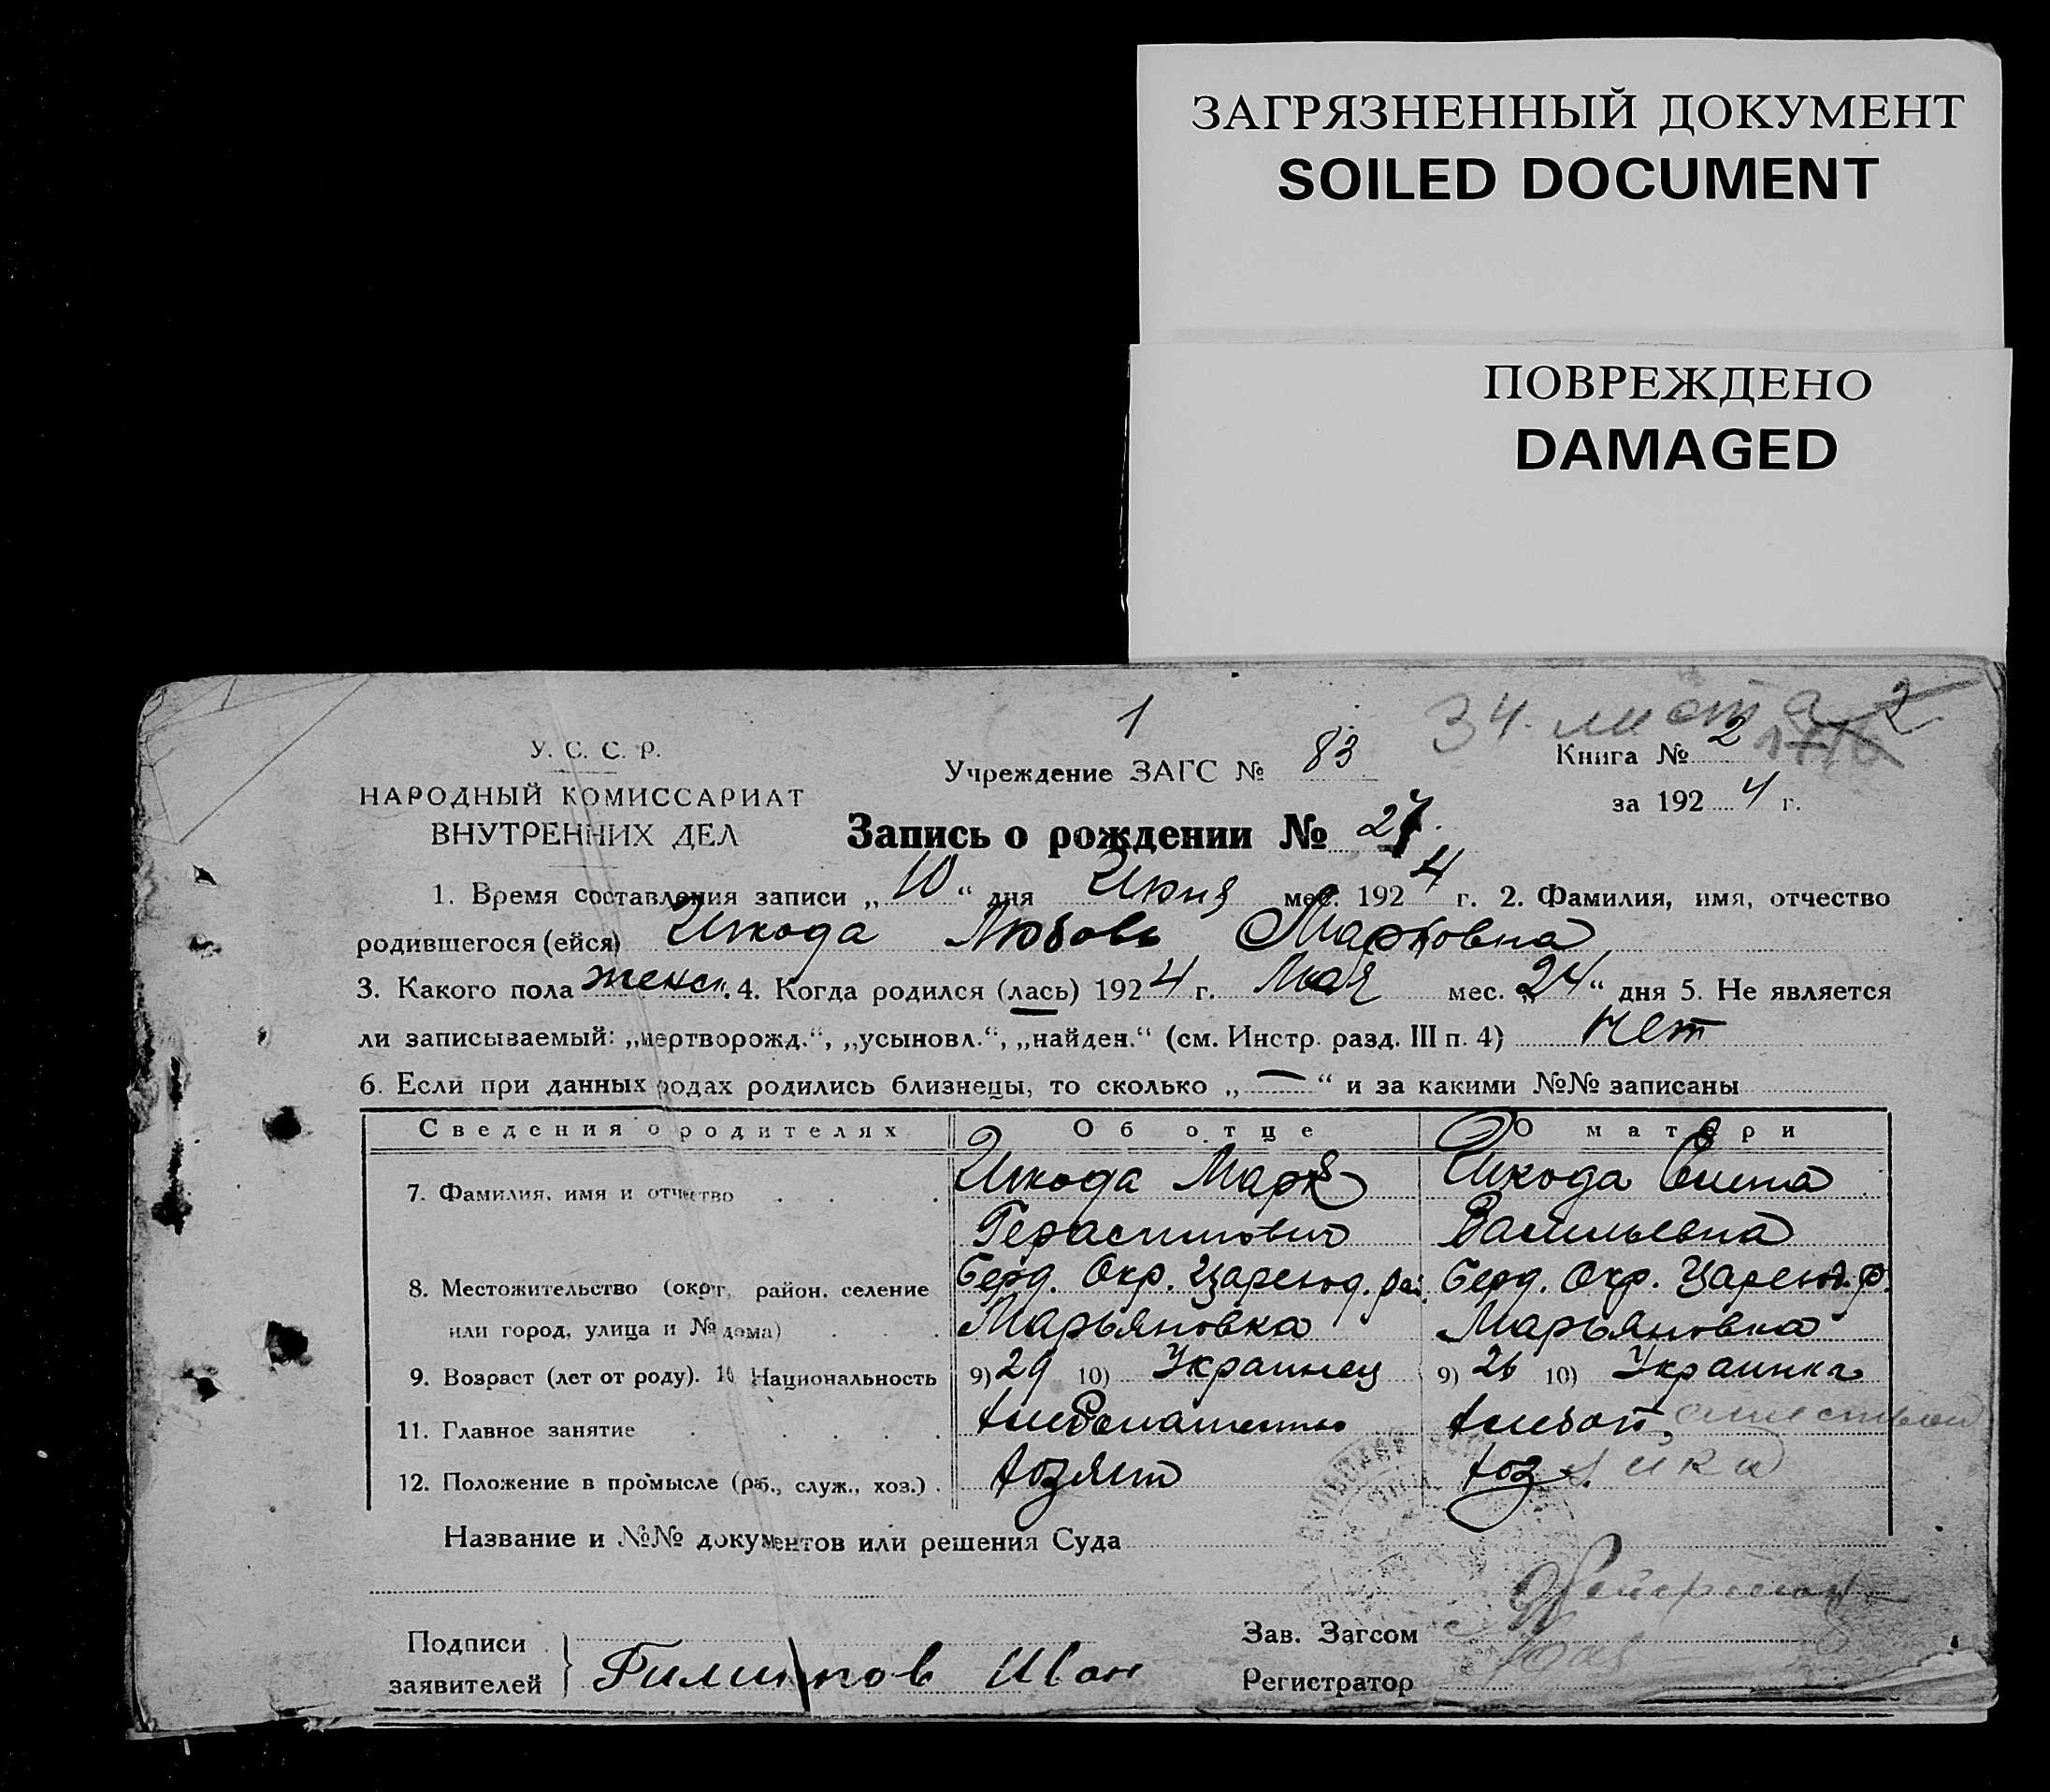 ЗАГРЯЗНЕННЫЙ ДОКУМЕНТ
SOILED DOCUMENT
ПОВРЕЖДЕНО
DAMAGED
1
34. листа 2
У. С. С. Р.
НАРОДНЫЙ КОМИССАРИАТ
ВНУТРЕННИХ ДЕЛ
Учреждение ЗАГС № 83
Книга № 2
за 1924 г.
Запись о рождении № 27.
1. Время составления записи „10“ дня Июня мес. 1924 г. 2. Фамилия, имя, отчество
родившегося (ейся) Шкода Любовь Марковна
3. Какого пола женск. 4. Когда родился (лась) 1924 г. Мая мес. „24“ дня 5. Не является
ли записываемый: „мертворожд.“, „усыновл.“, „найден.“ (см. Инстр. разд. III п. 4) нет
6. Если при данных родах родились близнецы, то сколько „—“ и за какими №№ записаны
Сведения о родителях Об отце О матери
7. Фамилия, имя и отчество Шкода Марк Шкода
Герасимович Васильевна
8. Местожительство (округ, район, селение Берд. Окр. Цареконд. рай. Берд. Окр. Цареконд. р.
или город, улица и № дома) Марьяновка Марьяновка
9. Возраст (лет от роду). 10 Национальность 9) 29 10) Украинец 9) 26 10) Украинка
11. Главное занятие хлебопашество хлебоп.
12. Положение в промысле (раб., служ., хоз.) хозяин хоз.
Название и №№ документов или решения Суда
Подписи
заявителей } Филиппов Иван
Зав. Загсом
Регистратор